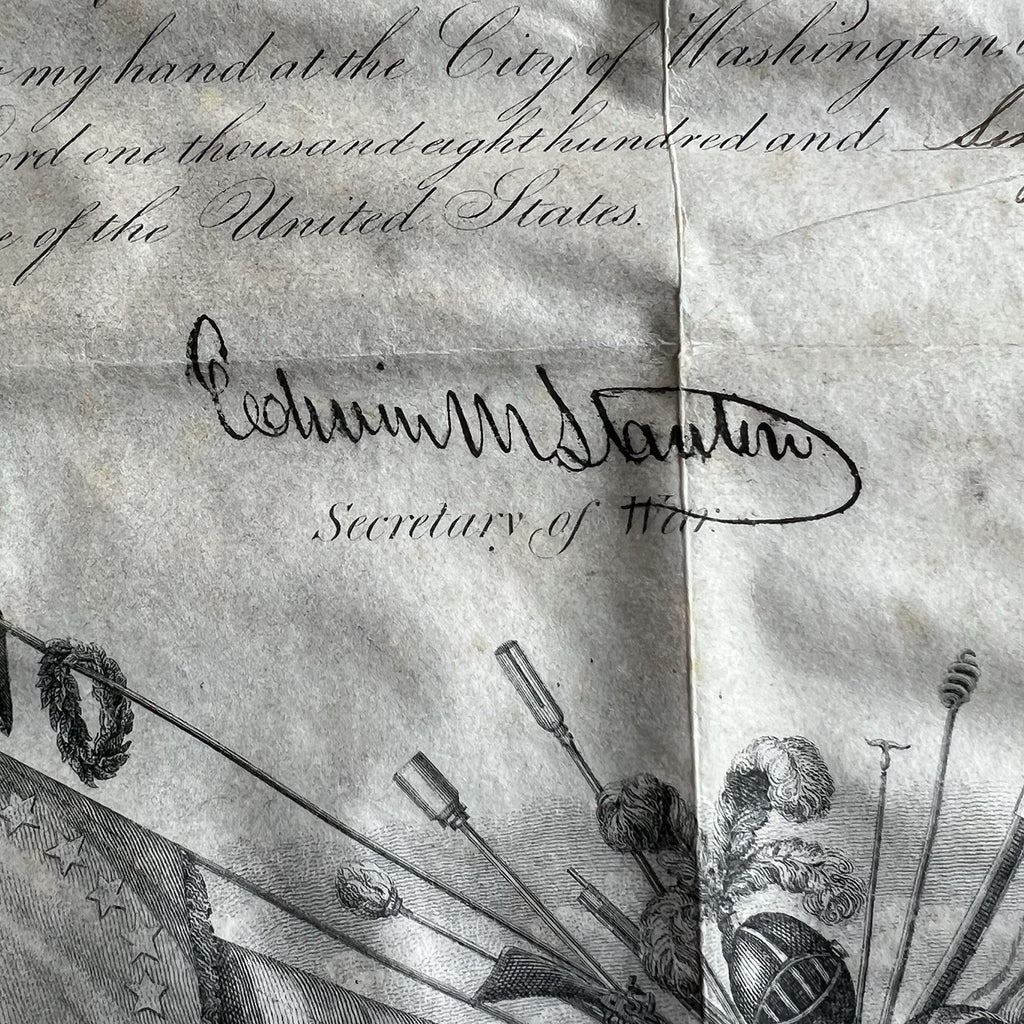 my hand at the City of Washington
one thousand eight hundred and
of the United States.
Edwin M Stanton
Secretary of War.